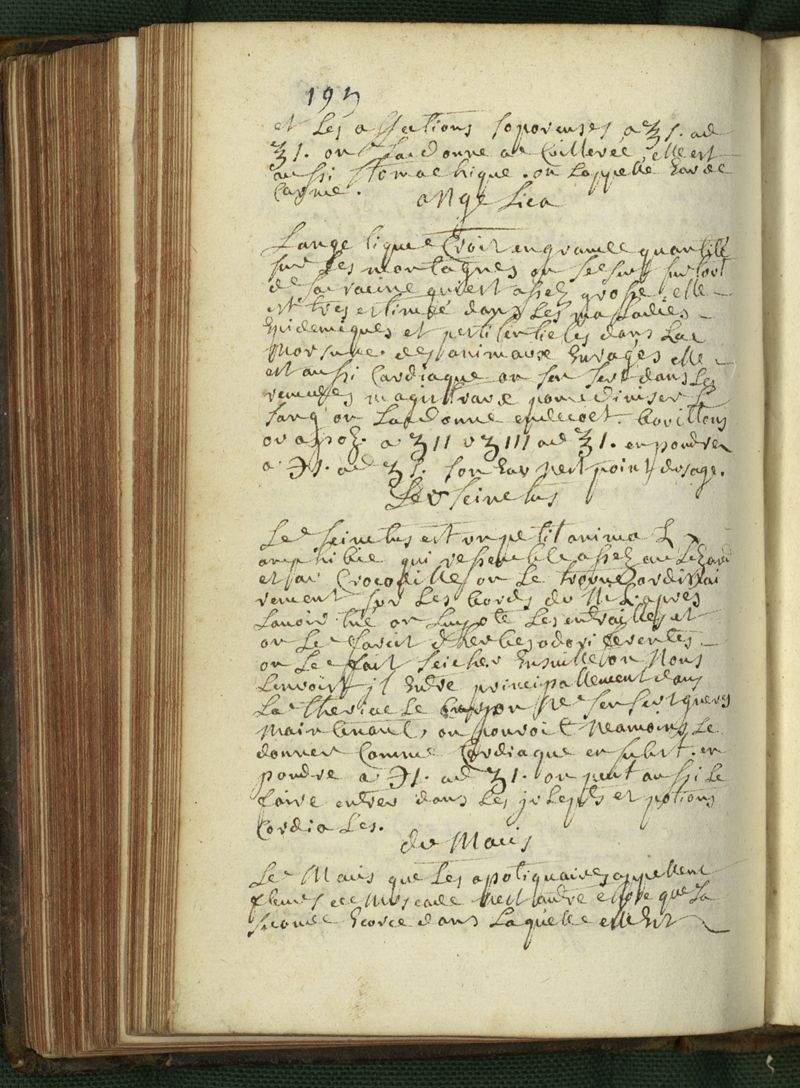 197
et Les affections soporeuses a ʒ s. ad
ʒ 1. on La donne a Cuilleree, elle est
aussi stomachique. on L'appelle Eau de
Carme.
angelica
L'angelique Croit en grande quantité
sur Les montagnes on se sert sur tout
de sa racine qui est assez grosse. elle
est tres estimée dans Les maladies
Epidemiques et pestilentieles dans La
Morsure des animaux Enragés elle
est aussi Cardiaque on s'en sert dans Les
remedes pour diviser Le
sang on La donne en decoct. bovillons
ou apoz. a ʒ II v ʒ III ad ℥ 1. en poudre
a ℈ 1. ad ʒ 1. son Eau n'est point d'usage.
Le Seinctus
Le Seinctus est un petit animal
amphibie qui ressemble assez au Lezard
et au Crocodille on Le trouve ordinai
rement sur Les bords du Nil apres
L'avoir tué on Luy ote Les entrailles et
on Le farcit d'herbes odoriferentes
on Le fait seicher Ensuitte on Nous
L'envoit, jl Entre principallement dans
La theriac Le on Ne s'en sert gueres
Maintenant, on pouroit Neamoins Le
donner Comme Cardiaque en subst. en
poudre a ℈ 1. ad ʒ 1. on peut aussi Le
faire entrer dans Les juleps et potions
Cordiales.
du Macis
Le Macis que Les apotiquaires appellent
fleurs de Muscade N'est autre chose que La
seconde Ecorce dans Laquelle elle Est